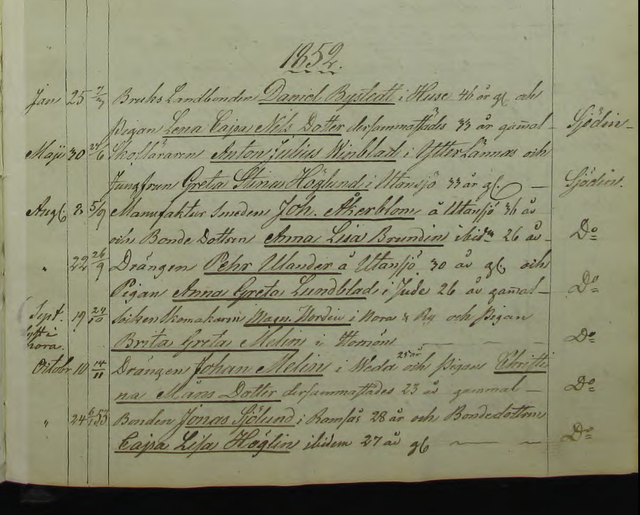 1852.
Jan 25 Bruks Landbonden Daniel Bystedt i Huse 46 år gl och
Pigan Lena Cajsa Nels Dotter dersammastädes 33 år gammal - Sjödin
Maji 30 Skolläraren Anton Julius Winblad i Ytterlännäs och
Jungfrun Greta Höglund i Utansjö 33 år gl. - Sjödin.
Aug. 8 5/9 Manufaktur Smeden Joh. Åkerblom å Utansjö 36 år
och Bonde Dottren Anna Lisa Brundin ibidm 26 år - Do
" 22 26/9 Drängen Pehr Ulander å Utansjö 30 år gl och
Pigan Anna Greta Lundblad i Jude 26 år gammal - Do
Sept. 19 24/10 Socken Skomakaren Magn. Nordin i Nora och Pigan
i Nora. Brita Greta Melin i - Do
Octobr 10 14/11 Drängen Johan Melin i 25 år och Pigan Christi
na Måns Dotter dersammastädes 23 år gammal - Do
" 24 Bonden Jonas Sjölund i Ramsås 28 år och Bondedottren
Cajsa Lisa Höglin ibidem 27 år gl - - Do